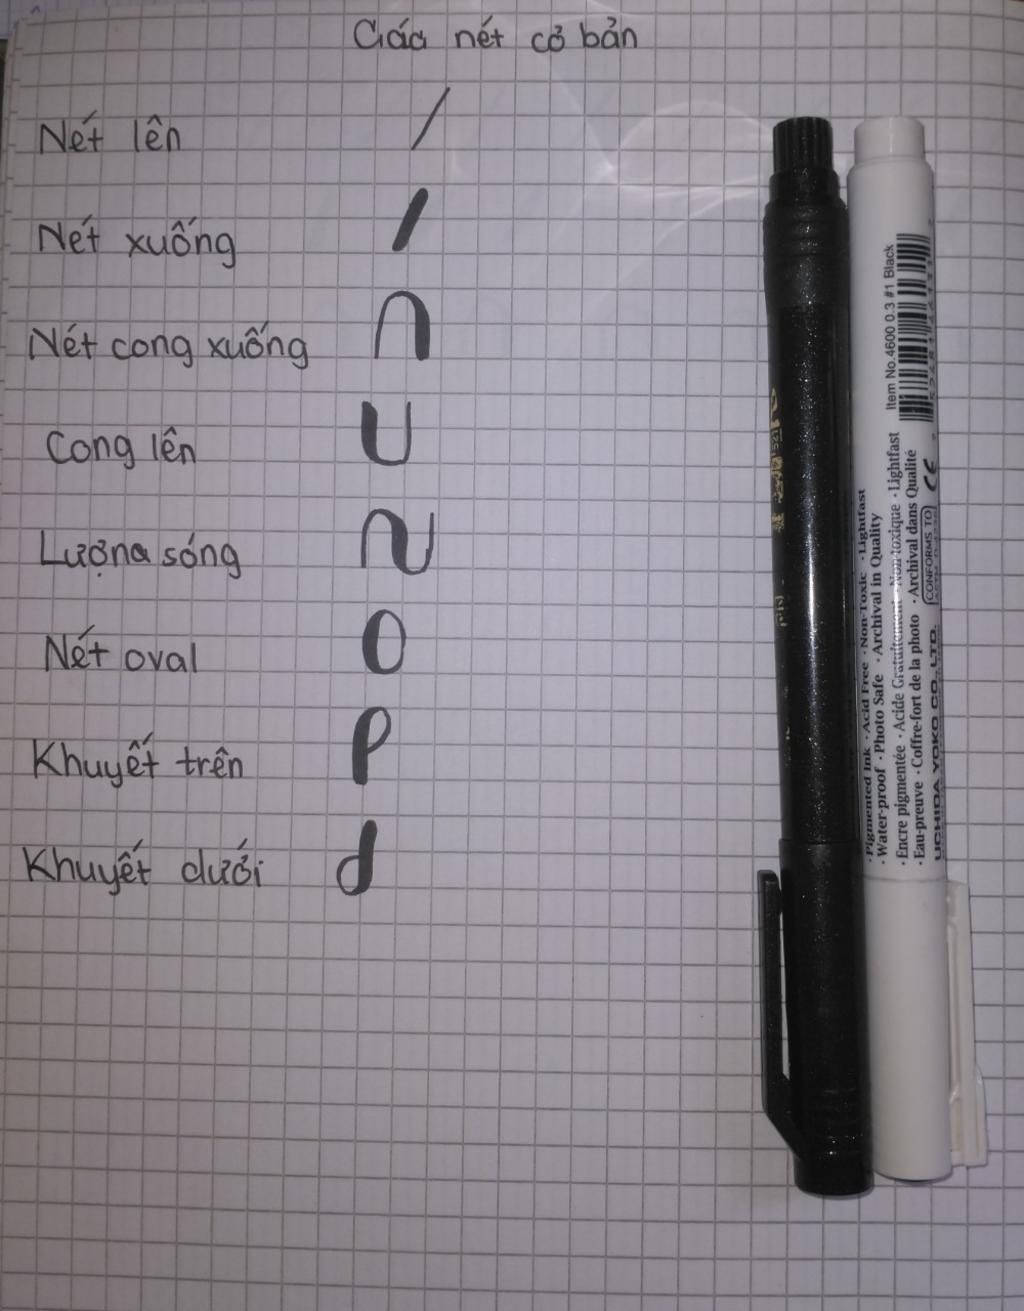 Các nét cỏ bản
Nét lên
Nét xuống
Nét cong xuống
Cong lên
Lượna sóng
Nét oval
Khuyết trên
Khuyết dưới
Item No.4600 0.3 #1 Black
· Pigmented Ink · Acid Free · Non-Toxic · Lightfast
· Water-proof · Photo Safe · Archival in Quality
· Encre pigmentée · Acide Gratuitement · Non-toxique · Lightfast
· Eau-preuve · Coffre-fort de la photo · Archival dans Qualité
CONFORMS TO
CE
UCHIDA YOKO CO., LTD.